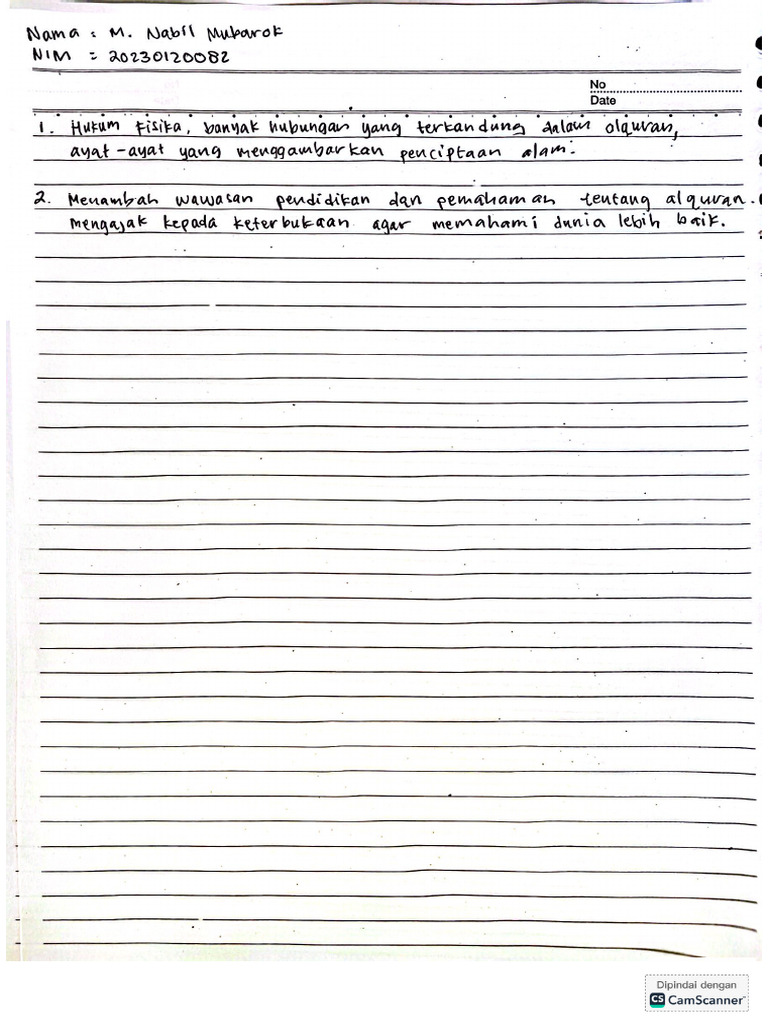 Nama : M. Nabil Mubarok
NIM = 20230120082
No
Date
1. Hukum Fisika, banyak hubungan yang terkandung dalam alquran,
ayat-ayat yang menggambarkan penciptaan alam.
2. Menambah wawasan pendidikan dan pemahaman tentang alquran.
mengajak kepada keterbukaan agar memahami dunia lebih baik.
Dipindai dengan
CS CamScanner